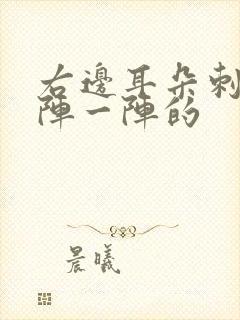 右邊耳朵刺
陣一陣的
晨曦